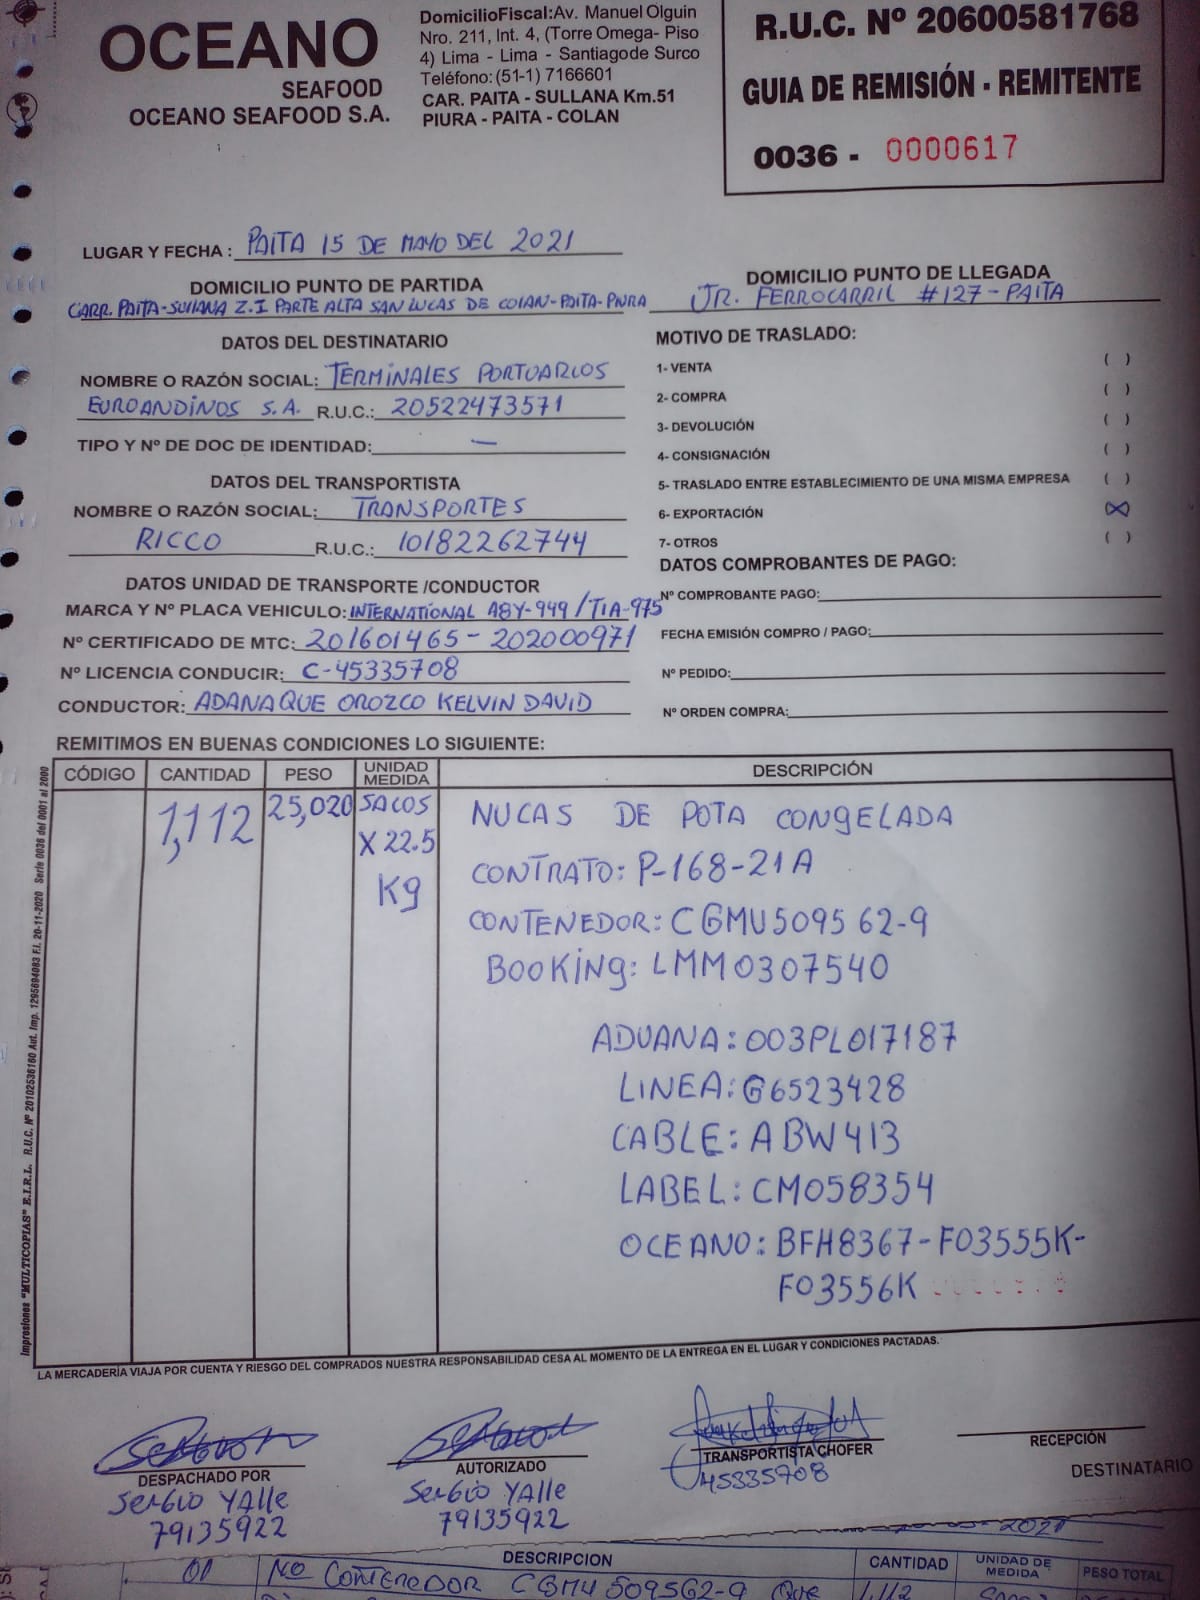 OCEANO
SEAFOOD
OCEANO SEAFOOD S.A.
DomicilioFiscal:Av. Manuel Olguin
Nro. 211, Int. 4, (Torre Omega- Piso
4) Lima - Lima - Santiagode Surco
Teléfono: (51-1) 7166601
CAR. PAITA - SULLANA Km.51
PIURA - PAITA - COLAN
R.U.C. Nº 20600581768
GUIA DE REMISIÓN - REMITENTE
0036 - 0000617
LUGAR Y FECHA : PAITA 15 DE MAYO DEL 2021
DOMICILIO PUNTO DE PARTIDA
CARR. PAITA-SULLANA Z.I PARTE ALTA SAN LUCAS DE COLAN-PAITA-PIURA
DOMICILIO PUNTO DE LLEGADA
JR. FERROCARRIL #127-PAITA
DATOS DEL DESTINATARIO
NOMBRE O RAZÓN SOCIAL: TERMINALES PORTUARIOS
EUROANDINOS S.A. R.U.C.: 20522473571
TIPO Y Nº DE DOC DE IDENTIDAD: —
DATOS DEL TRANSPORTISTA
NOMBRE O RAZÓN SOCIAL: TRANSPORTES
RICCO R.U.C.: 10182262744
DATOS UNIDAD DE TRANSPORTE /CONDUCTOR
MARCA Y Nº PLACA VEHICULO: INTERNATIONAL A8Y-949/T1A-975
Nº CERTIFICADO DE MTC: 201601465- 202000971
Nº LICENCIA CONDUCIR: C-45335708
CONDUCTOR: ADANAQUE OROZCO KELVIN DAVID
MOTIVO DE TRASLADO:
1- VENTA ( )
2- COMPRA ( )
3- DEVOLUCIÓN ( )
4- CONSIGNACIÓN ( )
5- TRASLADO ENTRE ESTABLECIMIENTO DE UNA MISMA EMPRESA ( )
6- EXPORTACIÓN (X)
7- OTROS ( )
DATOS COMPROBANTES DE PAGO:
Nº COMPROBANTE PAGO:
FECHA EMISIÓN COMPRO / PAGO:
Nº PEDIDO:
Nº ORDEN COMPRA:
REMITIMOS EN BUENAS CONDICIONES LO SIGUIENTE:
CÓDIGO CANTIDAD PESO UNIDAD MEDIDA DESCRIPCIÓN
1,112 25,020 SACOS NUCAS DE POTA CONGELADA
X 22.5
Kg
CONTRATO: P-168-21A
CONTENEDOR: CGMU509562-9
BOOKING: LMM0307540
ADUANA: 003PL017187
LINEA: G6523428
CABLE: ABW413
LABEL: CM058354
OCEANO: BFH8367-F03555K-
F03556K
Impresiones "MULTICOPIAS" E.I.R.L. R.U.C. Nº 20102536160 Aut. Imp. 1295694083 F.I. 20-11-2020 Serie 0036 del 0001 al 2000
LA MERCADERÍA VIAJA POR CUENTA Y RIESGO DEL COMPRADOS NUESTRA RESPONSABILIDAD CESA AL MOMENTO DE LA ENTREGA EN EL LUGAR Y CONDICIONES PACTADAS.
DESPACHADO POR
Sergio Yalle
79135922
AUTORIZADO
Sergio Yalle
79135922
TRANSPORTISTA CHOFER
45335708
RECEPCIÓN
DESTINATARIO
2021
DESCRIPCION CANTIDAD UNIDAD DE MEDIDA PESO TOTAL
01 No CONTENEDOR CGMU 509562-9 Que 1,112